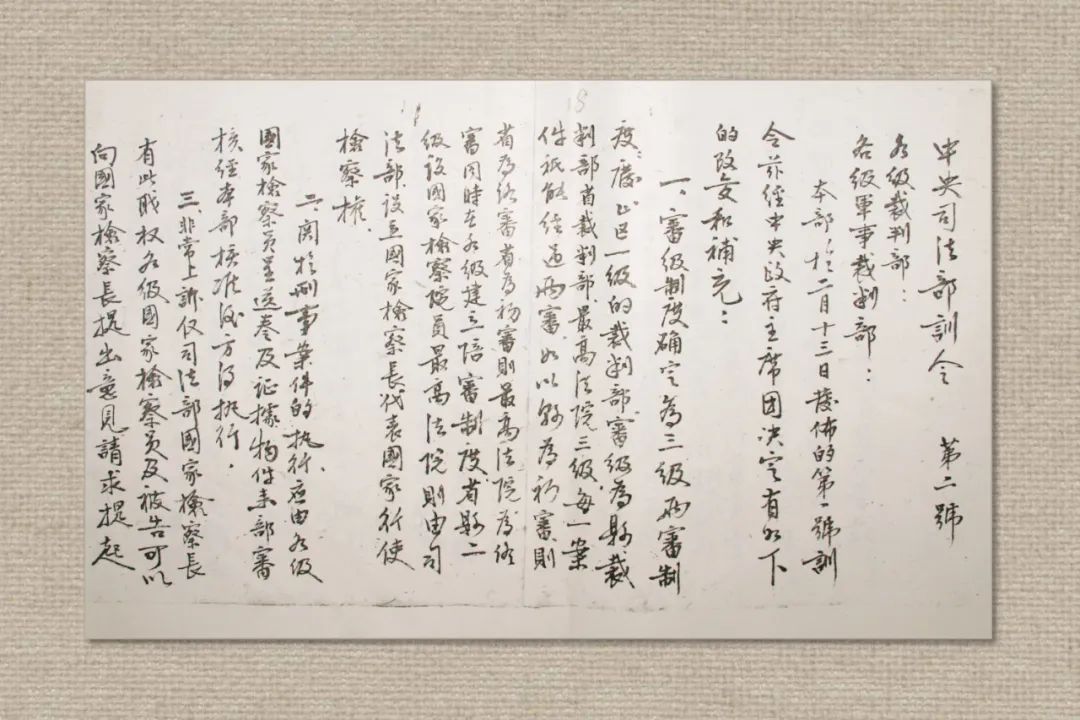 中央司法部訓令 第二號
各級裁判部：
各級軍事裁判部：
本部於二月十三日發佈的第一號訓
令茲經中央政府主席團决定有如下
的改变和補充：
一、審級制度确定為三級兩審制
度，廢止區一級的裁判部，審級為縣裁
判部省裁判部最高法院三級，每一案
件祇能经過兩審，如以縣為初審，則
省為終審省為初審則最高法院為終
審同時在各級建立陪審制度，省縣二
級設國家檢察院員最高法院則由司
法部設立國家檢察長代表國家行使
檢察權．
二、関於刑事案件的执行應由各級
國家檢察員呈送卷及証據物件來部審
核经本部核准後方得执行．
三、非常上訴仅司法部國家檢察長
有此戝权各級國家檢察員及被告可以
向國家檢察長提出意見請求提起